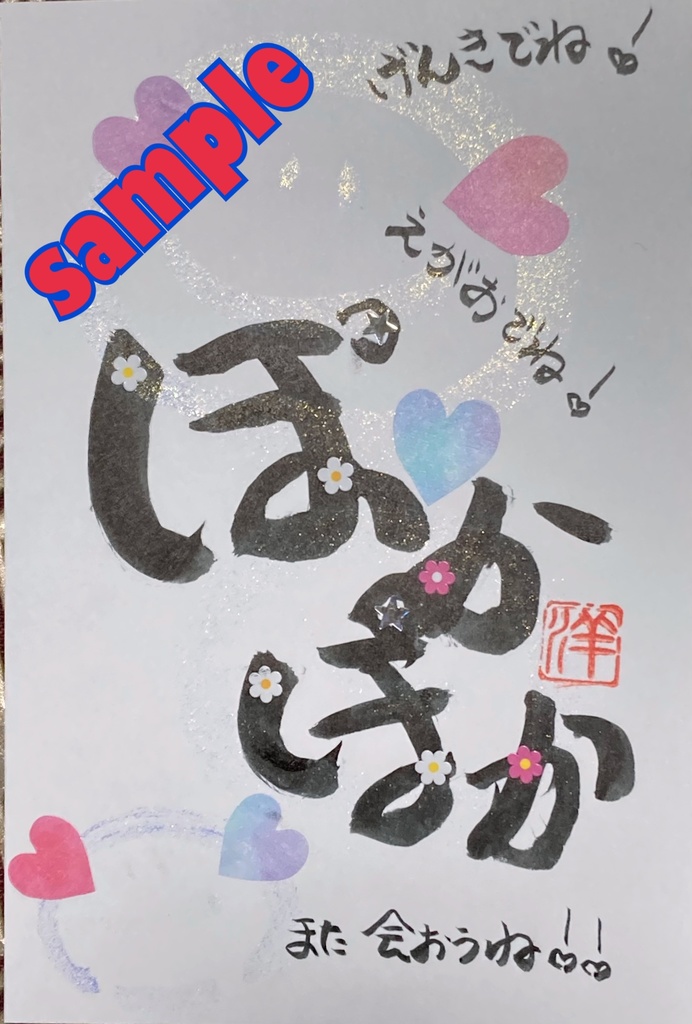 sample
げんきでね!
えがおでね!
ぽか
ぽか
洋
また 会おうね!!